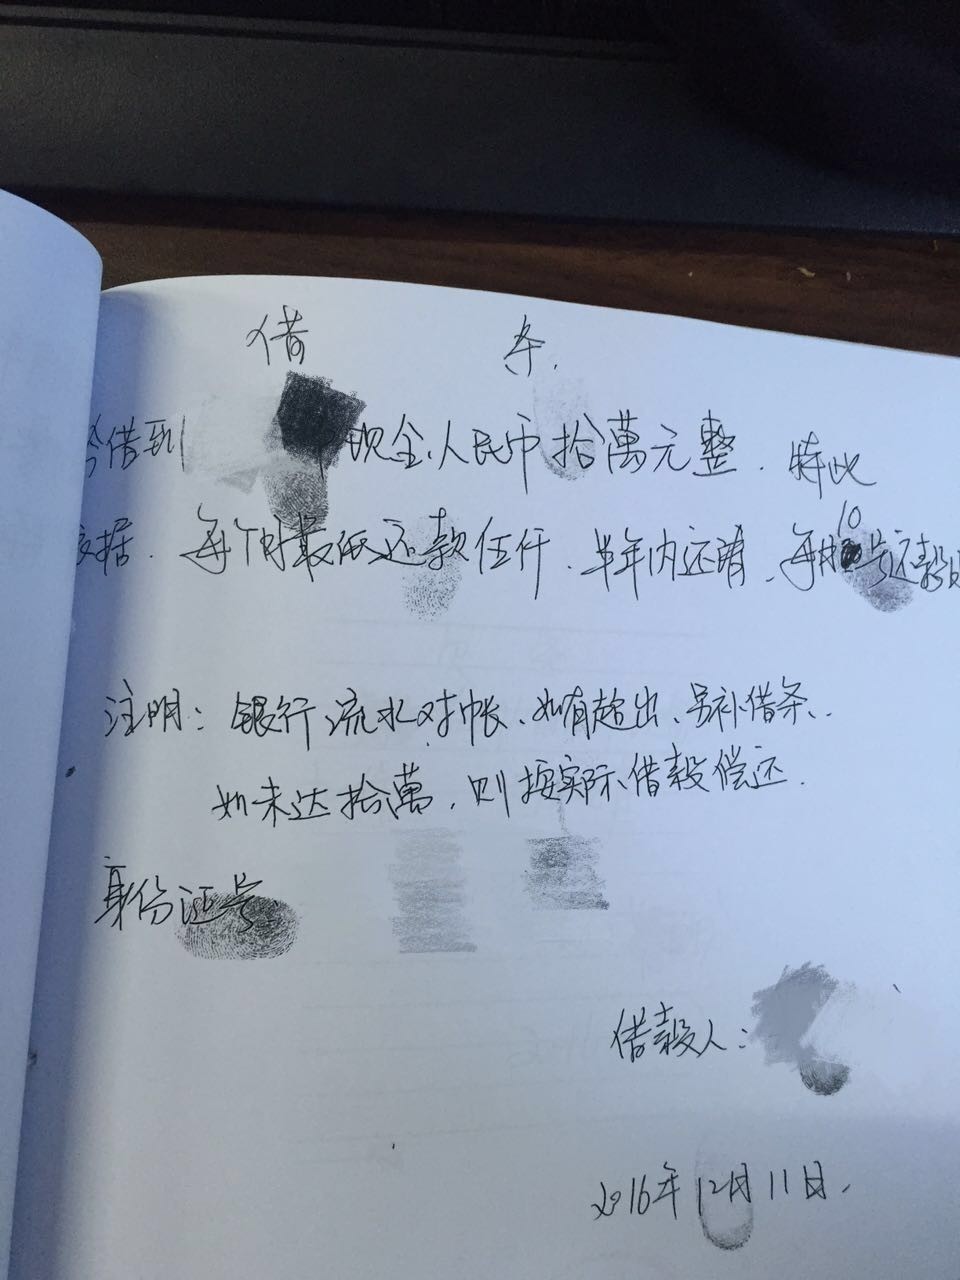 借 条.
今借到 现金人民币拾萬元整. 特此
立据. 每个月最低还款伍仟. 半年内还清、每月10号还款日
注明: 银行流水对帐、如有超出、另补借条.
如未达拾萬, 则按实际借款偿还.
身份证号:
借款人:
2016年12月11日.